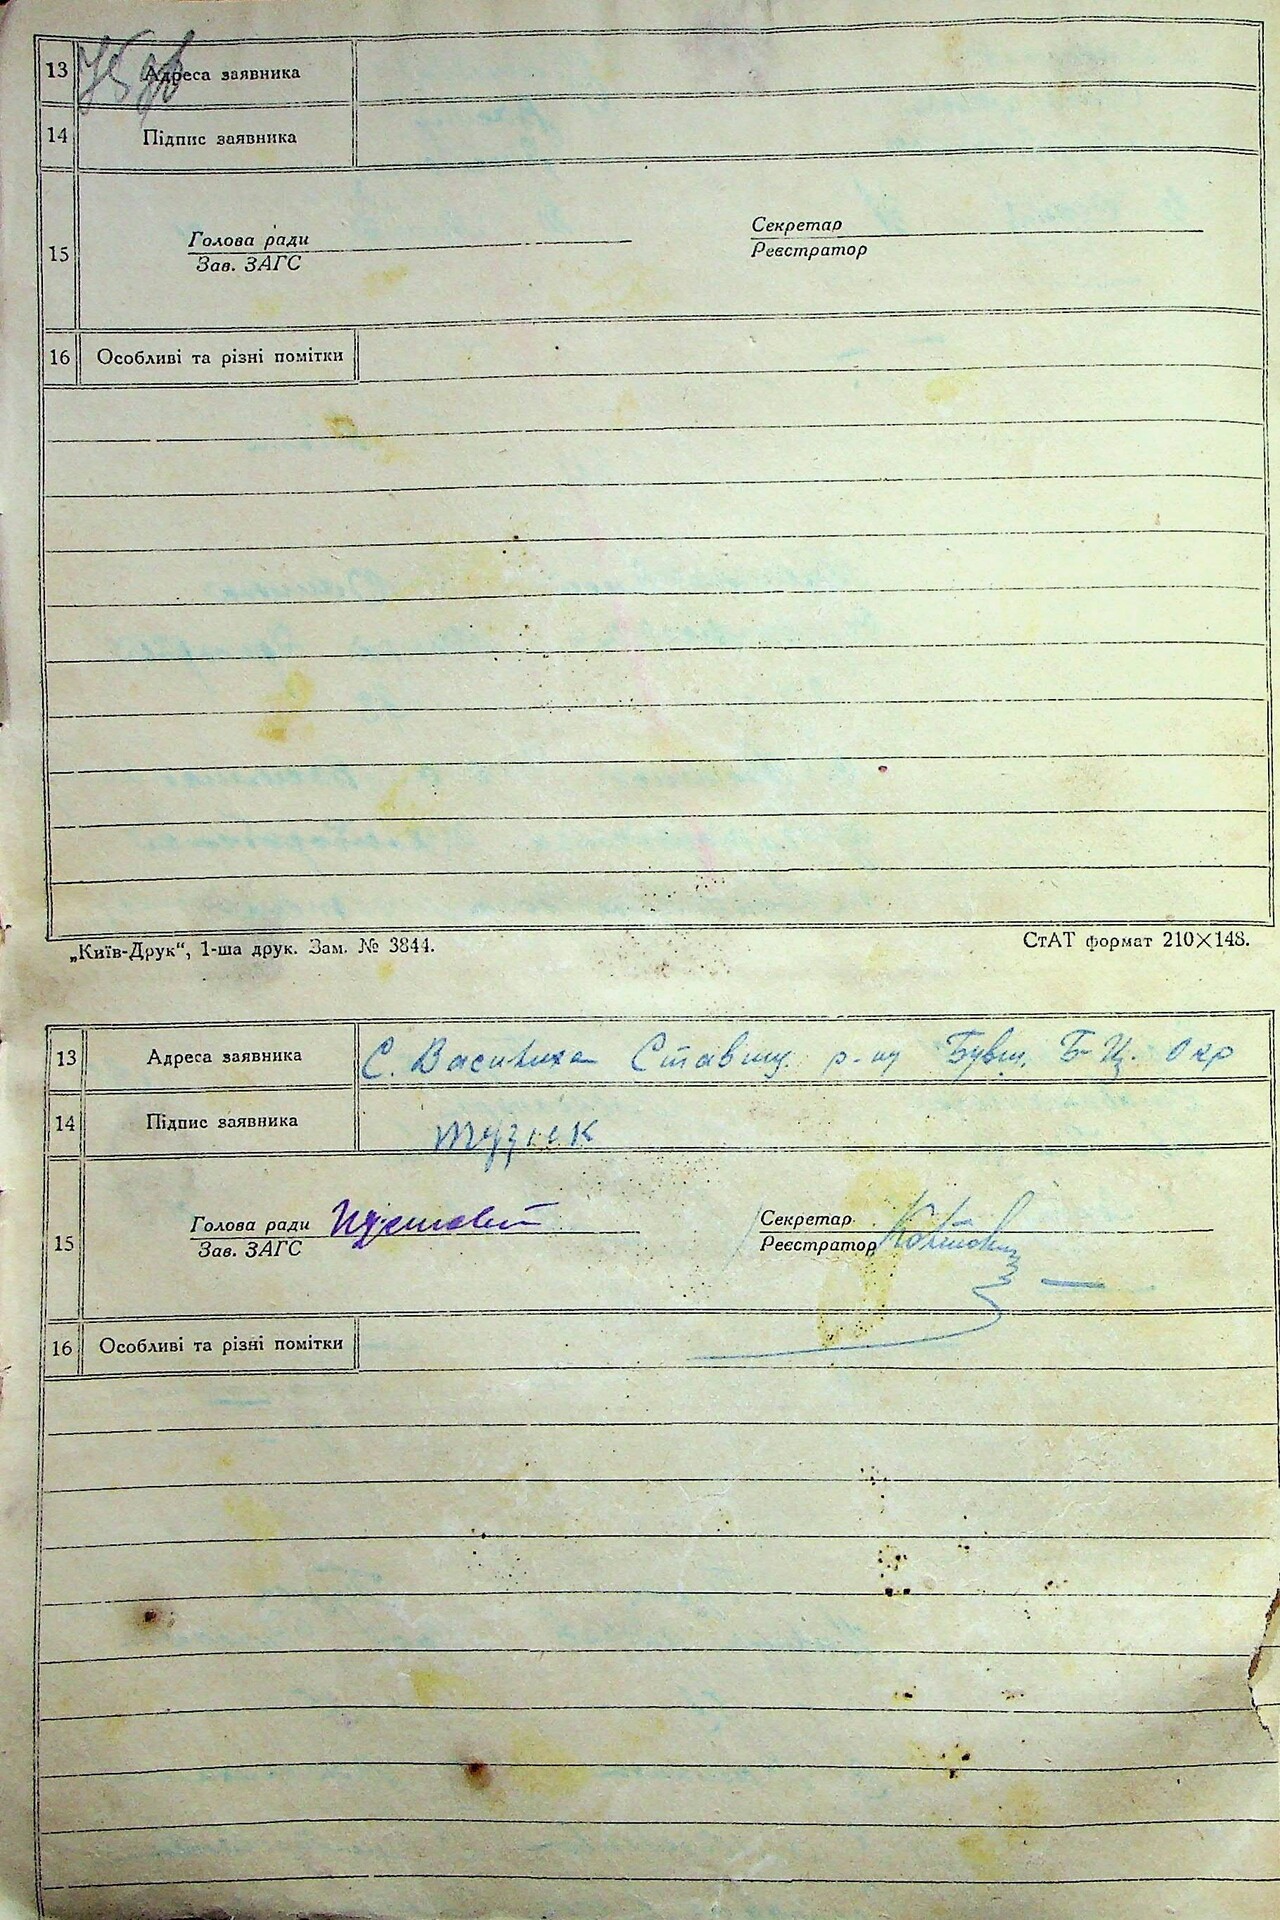 13 Адреса заявника
14 Підпис заявника
15 Голова ради Секретар
Зав. ЗАГС Реєстратор
16 Особливі та різні помітки
„Київ-Друк“, 1-ша друк. Зам. № 3844. СтАТ формат 210×148.
13 Адреса заявника С. Василиха Ставищ. р-ну Бувш. Б-Ц. Окр
14 Підпис заявника Музик
15 Голова ради Секретар
Зав. ЗАГС Реєстратор
16 Особливі та різні помітки